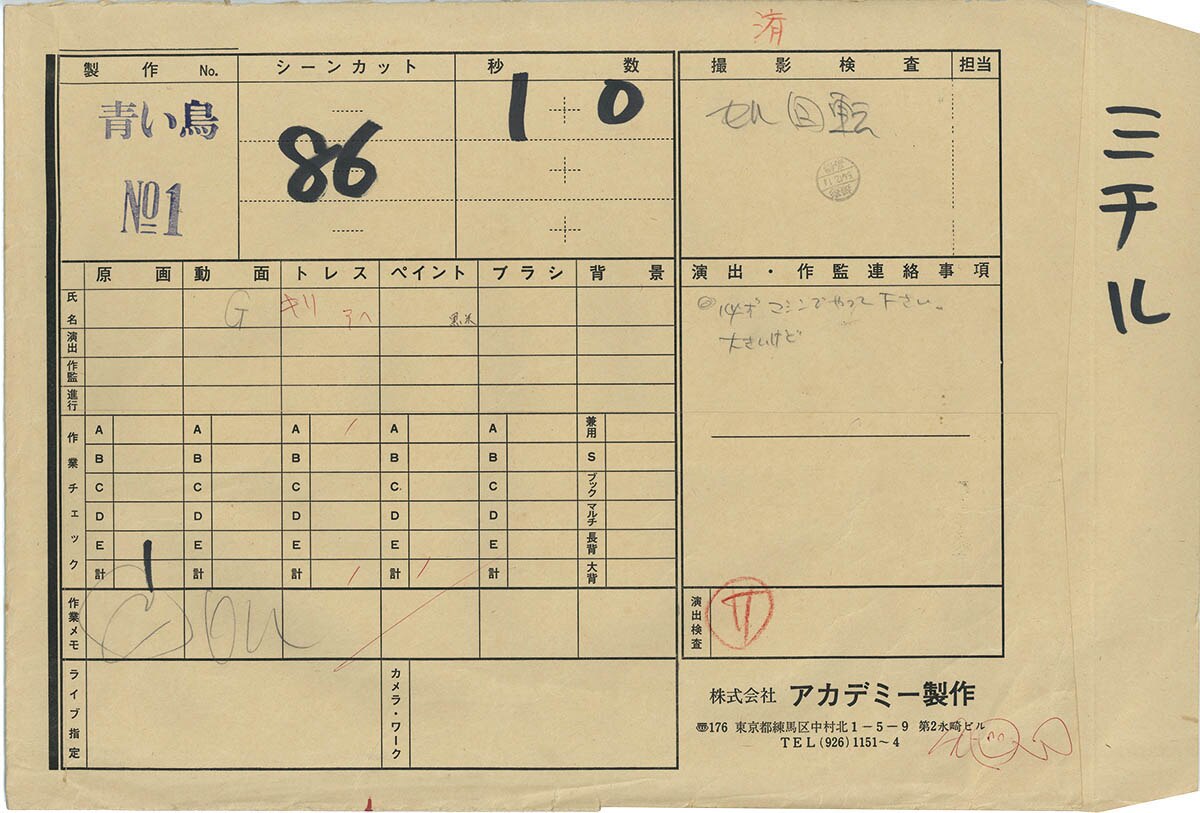 済
製作 No.
シーンカット
秒数
青い鳥
No1
86
1 0
撮影検査
担当
セル回転
ミチル
原画
動画
トレス
ペイント
ブラシ
背景
氏名
G
キリ
演出
作監
進行
作業チェック
A A A A A 兼用
B B B B B S
C C C C C ブック
D D D D D マルチ
E E E E E 長背
計 1 計 計 計 計 大背
作業メモ
ライブ指定
カメラ・ワーク
演出・作監連絡事項
マシンでやって下さい。
大きいけど
演出検査
株式会社 アカデミー製作
〠176 東京都練馬区中村北1-5-9 第2永崎ビル
TEL(926)1151~4